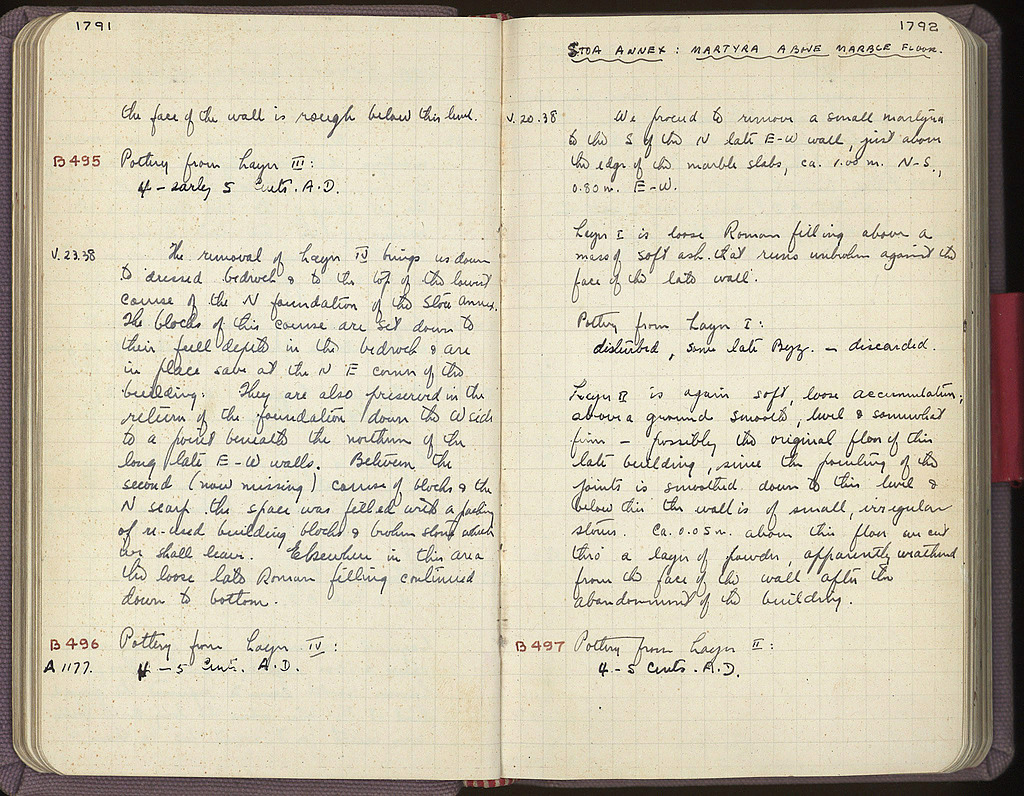 1791
the face of the wall is rough below this level.
B 495 Pottery from Layer III:
4 - early 5 Cents. A.D.
V. 23.38 The removal of Layer IV brings us down
to dressed bedrock & to the top of the lowest
course of the N foundation of the Stoa Annex.
The blocks of this course are set down to
their full depth in the bedrock & are
in place save at the N E corner of the
building. They are also preserved in the
return of the foundation down the W side
to a point beneath the northern of the
long late E-W walls. Between the
second (now missing) course of blocks & the
N scarp the space was filled with a packing
of re-used building blocks & broken stones which
we shall leave. Elsewhere in this area
the loose late Roman filling continued
down to bottom.
B 496 Pottery from Layer IV:
A 1177. 4 - 5 Cents. A.D.
1792
STOA ANNEX: MARTYRA ABOVE MARBLE FLOOR.
V. 20.38 We proceed to remove a small martyra
to the S of the N late E-W wall, just above
the edge of the marble slabs, ca. 1.00 m. N-S.,
0.80 m. E-W.
Layer I is loose Roman filling above a
mass of soft ash that runs unbroken against the
face of the late wall.
Pottery from Layer I:
disturbed, some late Byz. - discarded.
Layer II is again soft, loose accumulation,
above a ground smooth, level & somewhat
firm - possibly the original floor of this
late building, since the pointing of the
joints is smoothed down to this level &
below this the wall is of small, irregular
stones. Ca. 0.05 m. above this floor we cut
thro' a layer of powder, apparently weathered
from the face of the wall after the
abandonment of the building.
B 497 Pottery from Layer II:
4 - 5 Cents. A.D.